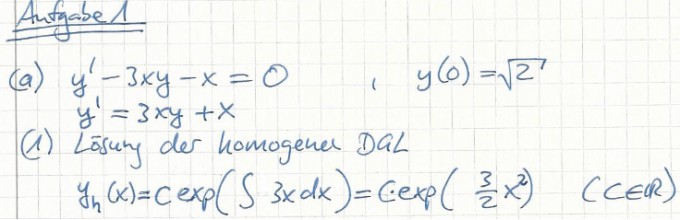 Aufgabe 1
(a) y' - 3xy - x = 0 , y(0) = √2
y' = 3xy + x
(1) Lösung der homogenen DGL
yₕ(x) = C exp(∫ 3x dx) = C exp( 3/2 x²) (C∈ℝ)